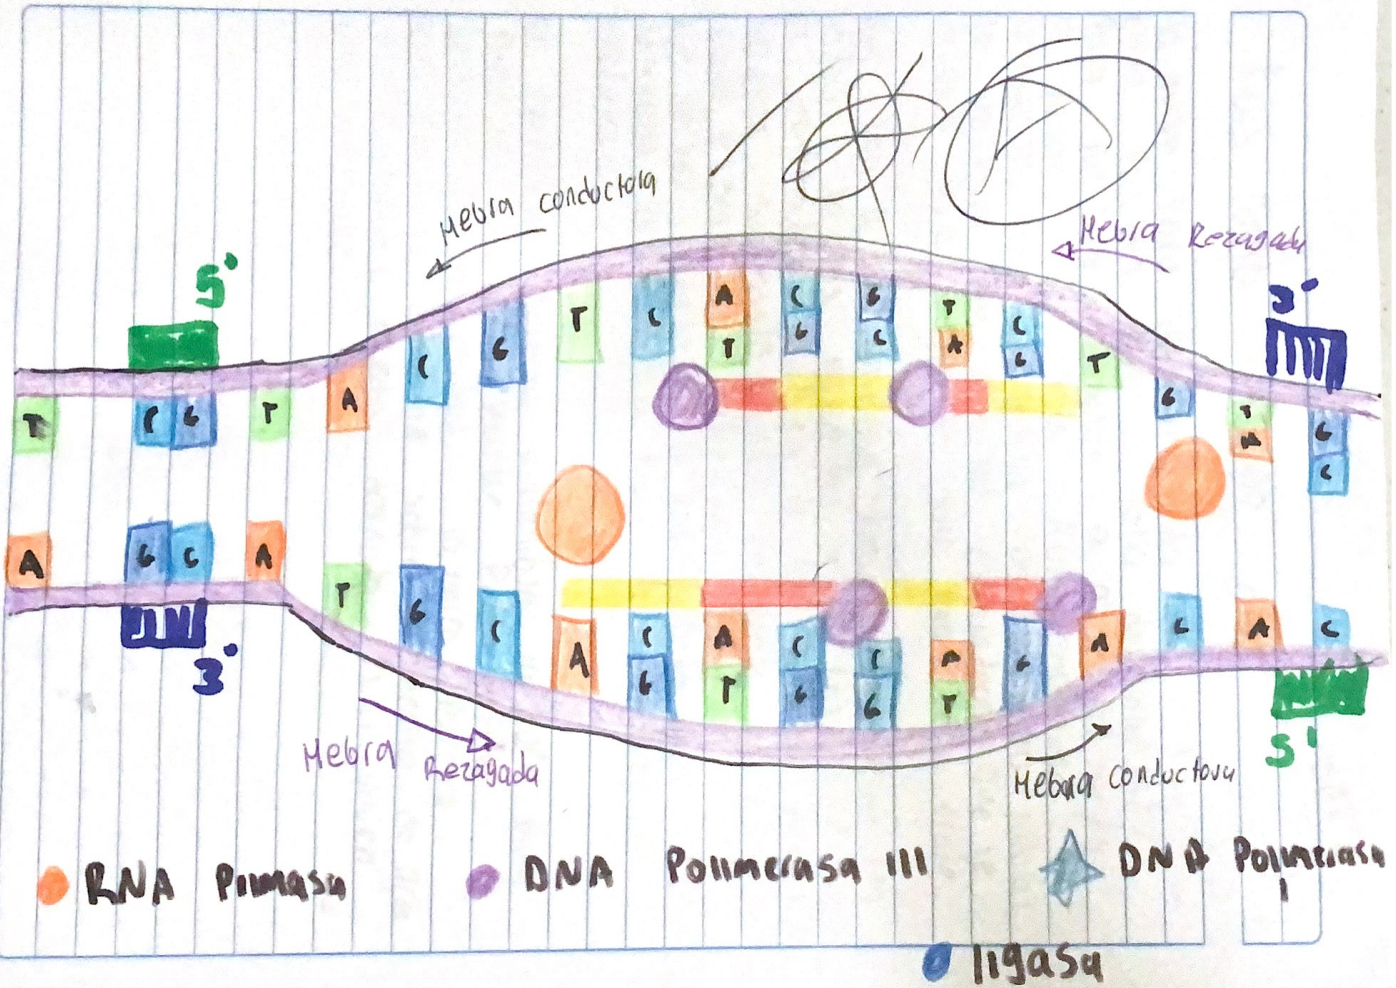 Hebra conductora
Hebra Rezagada
5'
3'
A C G T C
T C G T A C G T G C A G T G T G
T C G T A G C
A C
A G C A
T G C A C A C C A G A C A C
G T G G T
3'
5'
Hebra Rezagada
Hebra conductora
RNA Primasa
DNA Polimerasa III
DNA Polimerasa
I
ligasa